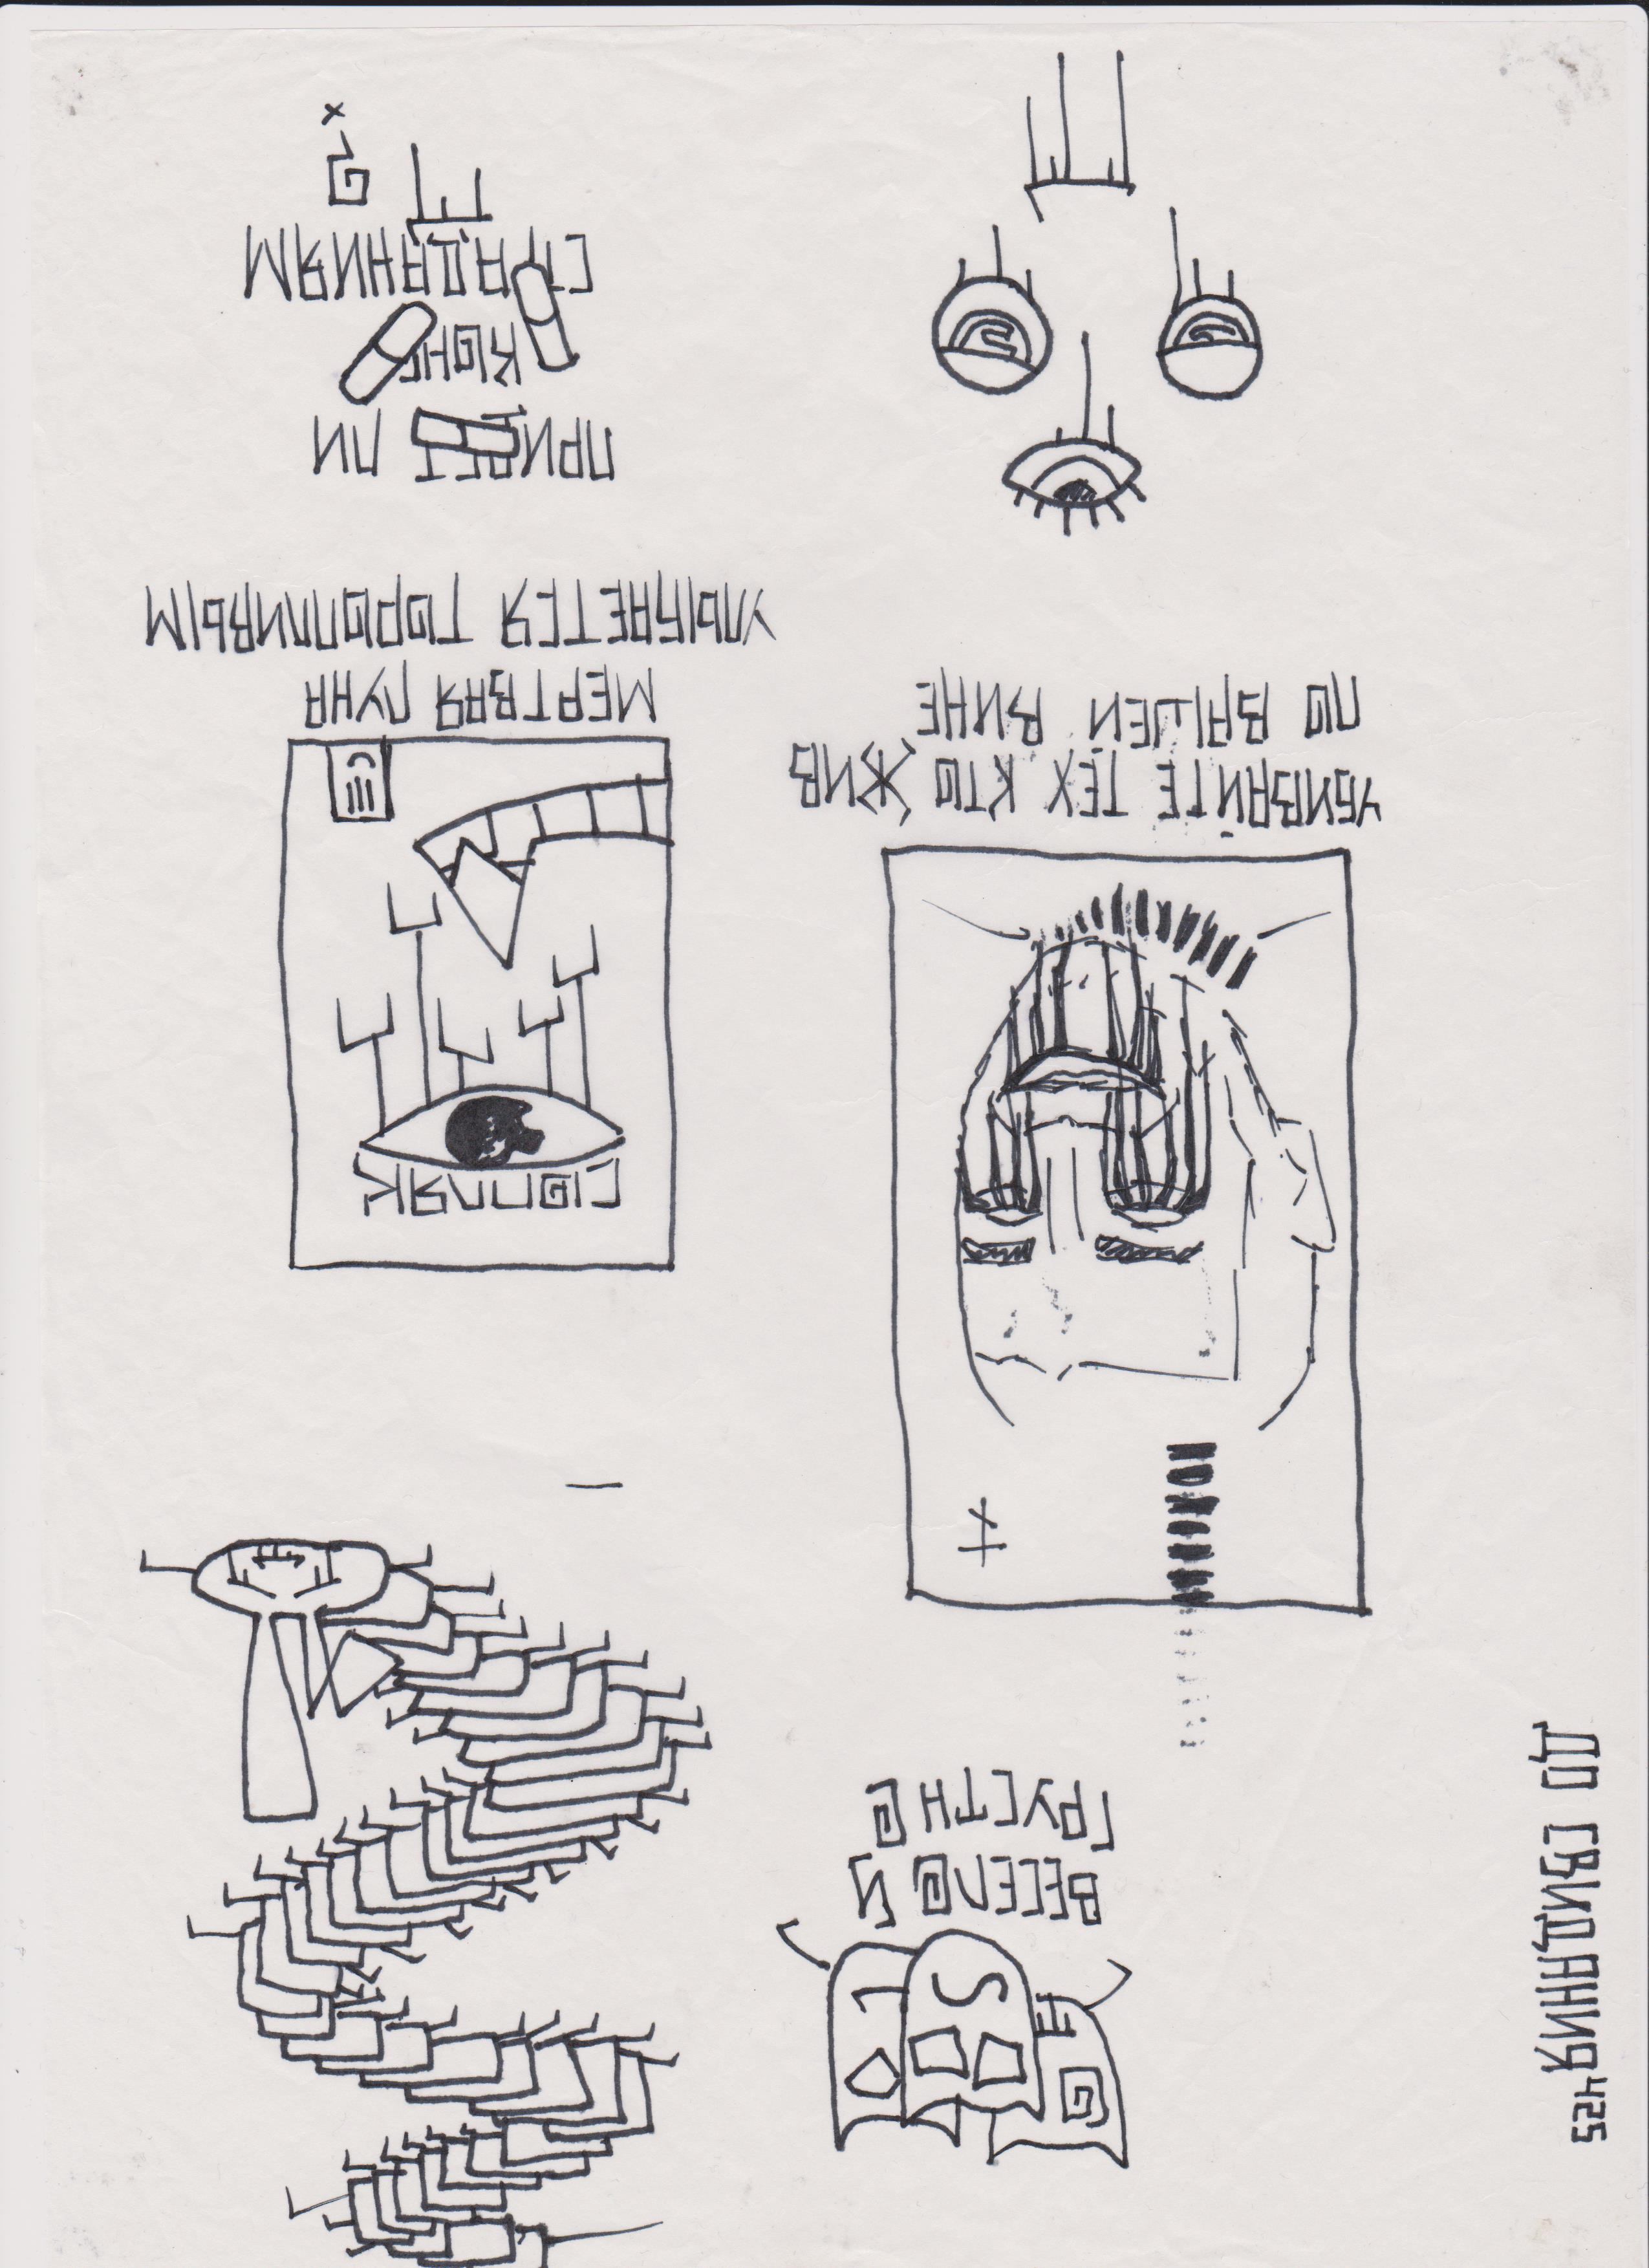 ДО СВИДАНИЯ 425
ВЕСЕЛО И
ГРУСТНО
УБИВАЙТЕ ТЕХ КТО ЖИВ
ПО ВАШЕЙ ВИНЕ
СОПЛЯК
МЕРТВАЯ ЛУНА
УЛЫБАЕТСЯ ТОРОПЛИВЫМ
ПРИДЕТ ЛИ
КОНЕЦ
СТРАДАНИЯМ
?